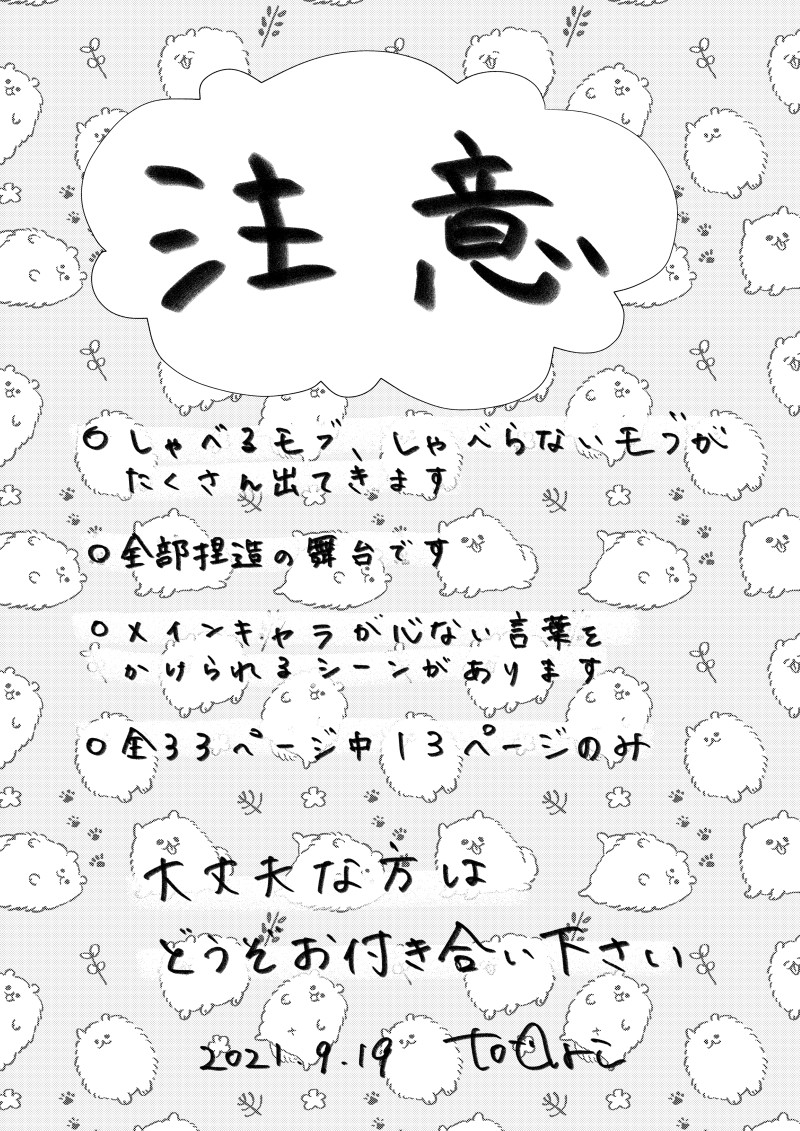 注意
○しゃべるモブ、しゃべらないモブが
たくさん出てきます
○全部捏造の舞台です
○メインキャラが心ない言葉を
かけられるシーンがあります
○全33ページ中13ページのみ
大丈夫な方は
どうぞお付き合い下さい
2021.9.19